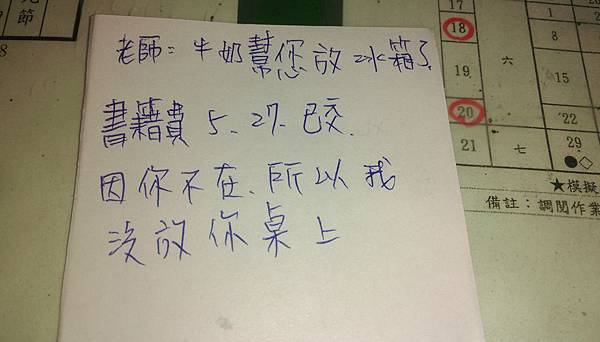 老師：牛奶幫您放冰箱了.
書籍費 5、27. 已交.
因你不在、所以我
沒放你桌上
節
8
17
18
19
20
21
六
七
1
8
15
22
29
●◇
★模擬
備註：調閱作業